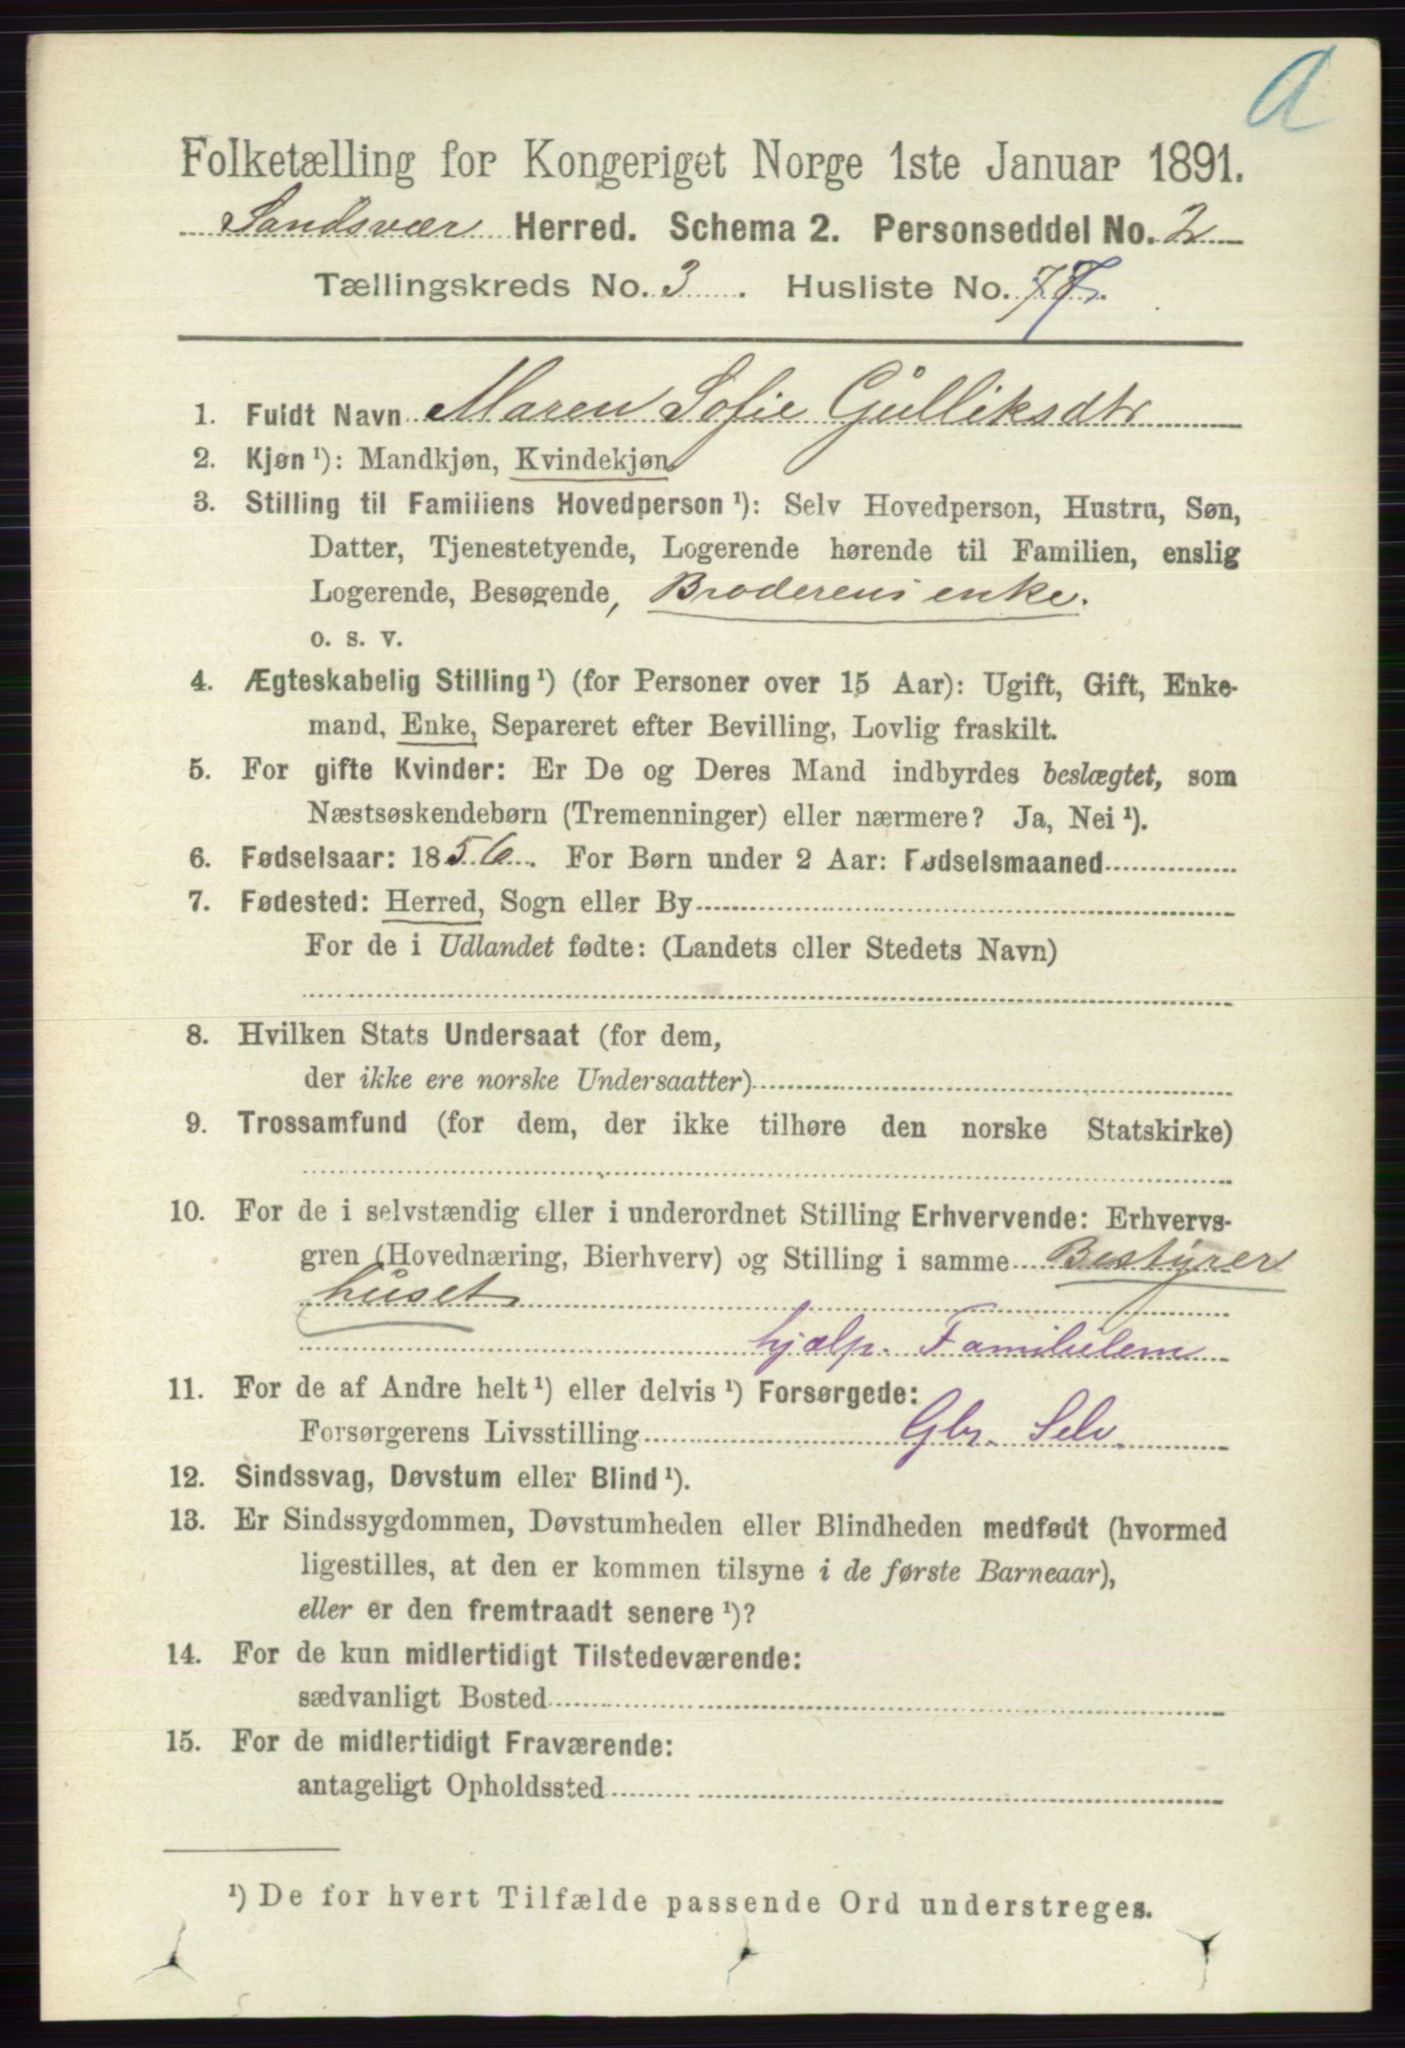 A
Folketælling for Kongeriget Norge 1ste Januar 1891.
Sandsvær Herred. Schema 2. Personseddel No. 2
Tællingskreds No. 3. Husliste No. 77.
1. Fuldt Navn Maren Sofie Gulliksdtr
2. Kjøn ¹): Mandkjøn, Kvindekjøn.
3. Stilling til Familiens Hovedperson ¹): Selv Hovedperson, Hustru, Søn,
Datter, Tjenestetyende, Logerende hørende til Familien, enslig
Logerende, Besøgende, Broderens enke.
o. s. v.
4. Ægteskabelig Stilling ¹) (for Personer over 15 Aar): Ugift, Gift, Enke-
mand, Enke, Separeret efter Bevilling, Lovlig fraskilt.
5. For gifte Kvinder: Er De og Deres Mand indbyrdes beslægtet, som
Næstsøskendebørn (Tremenninger) eller nærmere? Ja, Nei ¹).
6. Fødselsaar: 1856. For Børn under 2 Aar: Fødselsmaaned
7. Fødested: Herred, Sogn eller By
For de i Udlandet fødte: (Landets eller Stedets Navn)
8. Hvilken Stats Undersaat (for dem,
der ikke ere norske Undersaatter)
9. Trossamfund (for dem, der ikke tilhøre den norske Statskirke)
10. For de i selvstændig eller i underordnet Stilling Erhvervende: Erhvervs-
gren (Hovednæring, Bierhverv) og Stilling i samme Bestyrer
huset
hjælp. Familielem
11. For de af Andre helt ¹) eller delvis ¹) Forsørgede:
Forsørgerens Livsstilling Gbr. Selv.
12. Sindssvag, Døvstum eller Blind ¹).
13. Er Sindssygdommen, Døvstumheden eller Blindheden medfødt (hvormed
ligestilles, at den er kommen tilsyne i de første Barneaar),
eller er den fremtraadt senere ¹)?
14. For de kun midlertidigt Tilstedeværende:
sædvanligt Bosted
15. For de midlertidigt Fraværende:
antageligt Opholdssted
¹) De for hvert Tilfælde passende Ord understreges.